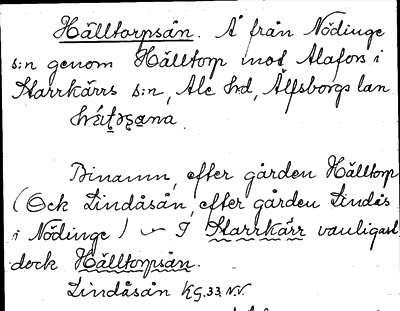 Hålltorpsån. Å från Nödinge
s:n genom Hålltorp mot Alafors i
Starrkärrs s:n, Ale hd, Älfsborgs län
Binamn, efter gården Hålltorp
(Ock Lindåsån, efter gården Lindås
i Nödinge) — I Starrkärr vanligast
dock Hålltorpsån.
Lindåsån KG.33.N.V.